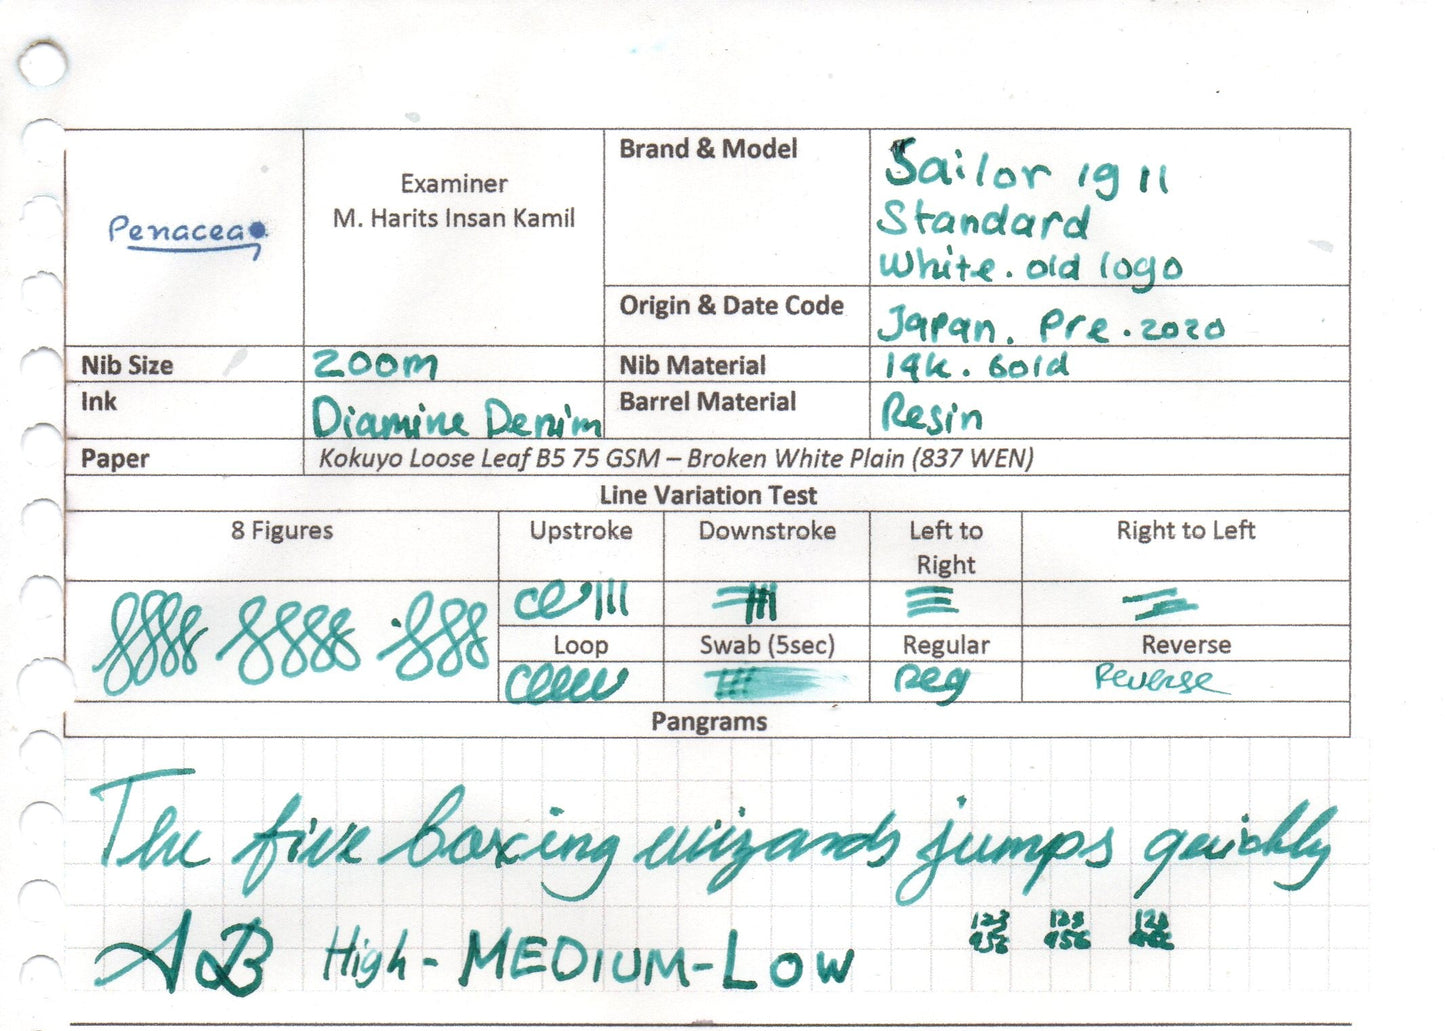 Penacea
Examiner
M. Harits Insan Kamil
Brand & Model
Sailor 1911
Standard
White. old logo
Origin & Date Code
Japan. Pre. 2020
Nib Size
Zoom
Nib Material
14k. Gold
Ink
Diamine Denim
Barrel Material
Resin
Paper
Kokuyo Loose Leaf B5 75 GSM – Broken White Plain (837 WEN)
Line Variation Test
8 Figures
Upstroke
Downstroke
Left to
Right
Right to Left
Loop
Swab (5sec)
Regular
Reverse
Reg
Reverse
Pangrams
The five boxing wizards jumps quickly
A B High - MEDIUM - LOW
123 123 123
456 456 456